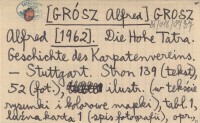 [GRÓSZ Alfred] GROSZ
Alfred [1962]. Die Hohe Tatra.
Geschichte des Karpatenvereins.
— Stuttgart. Stron 139 (tekst),
52 (fot.), ilustr. (w tekście
rysunki i kolorowe mapki), tabl. 1,
luźna karta 1 (spis fotografii), opr.,